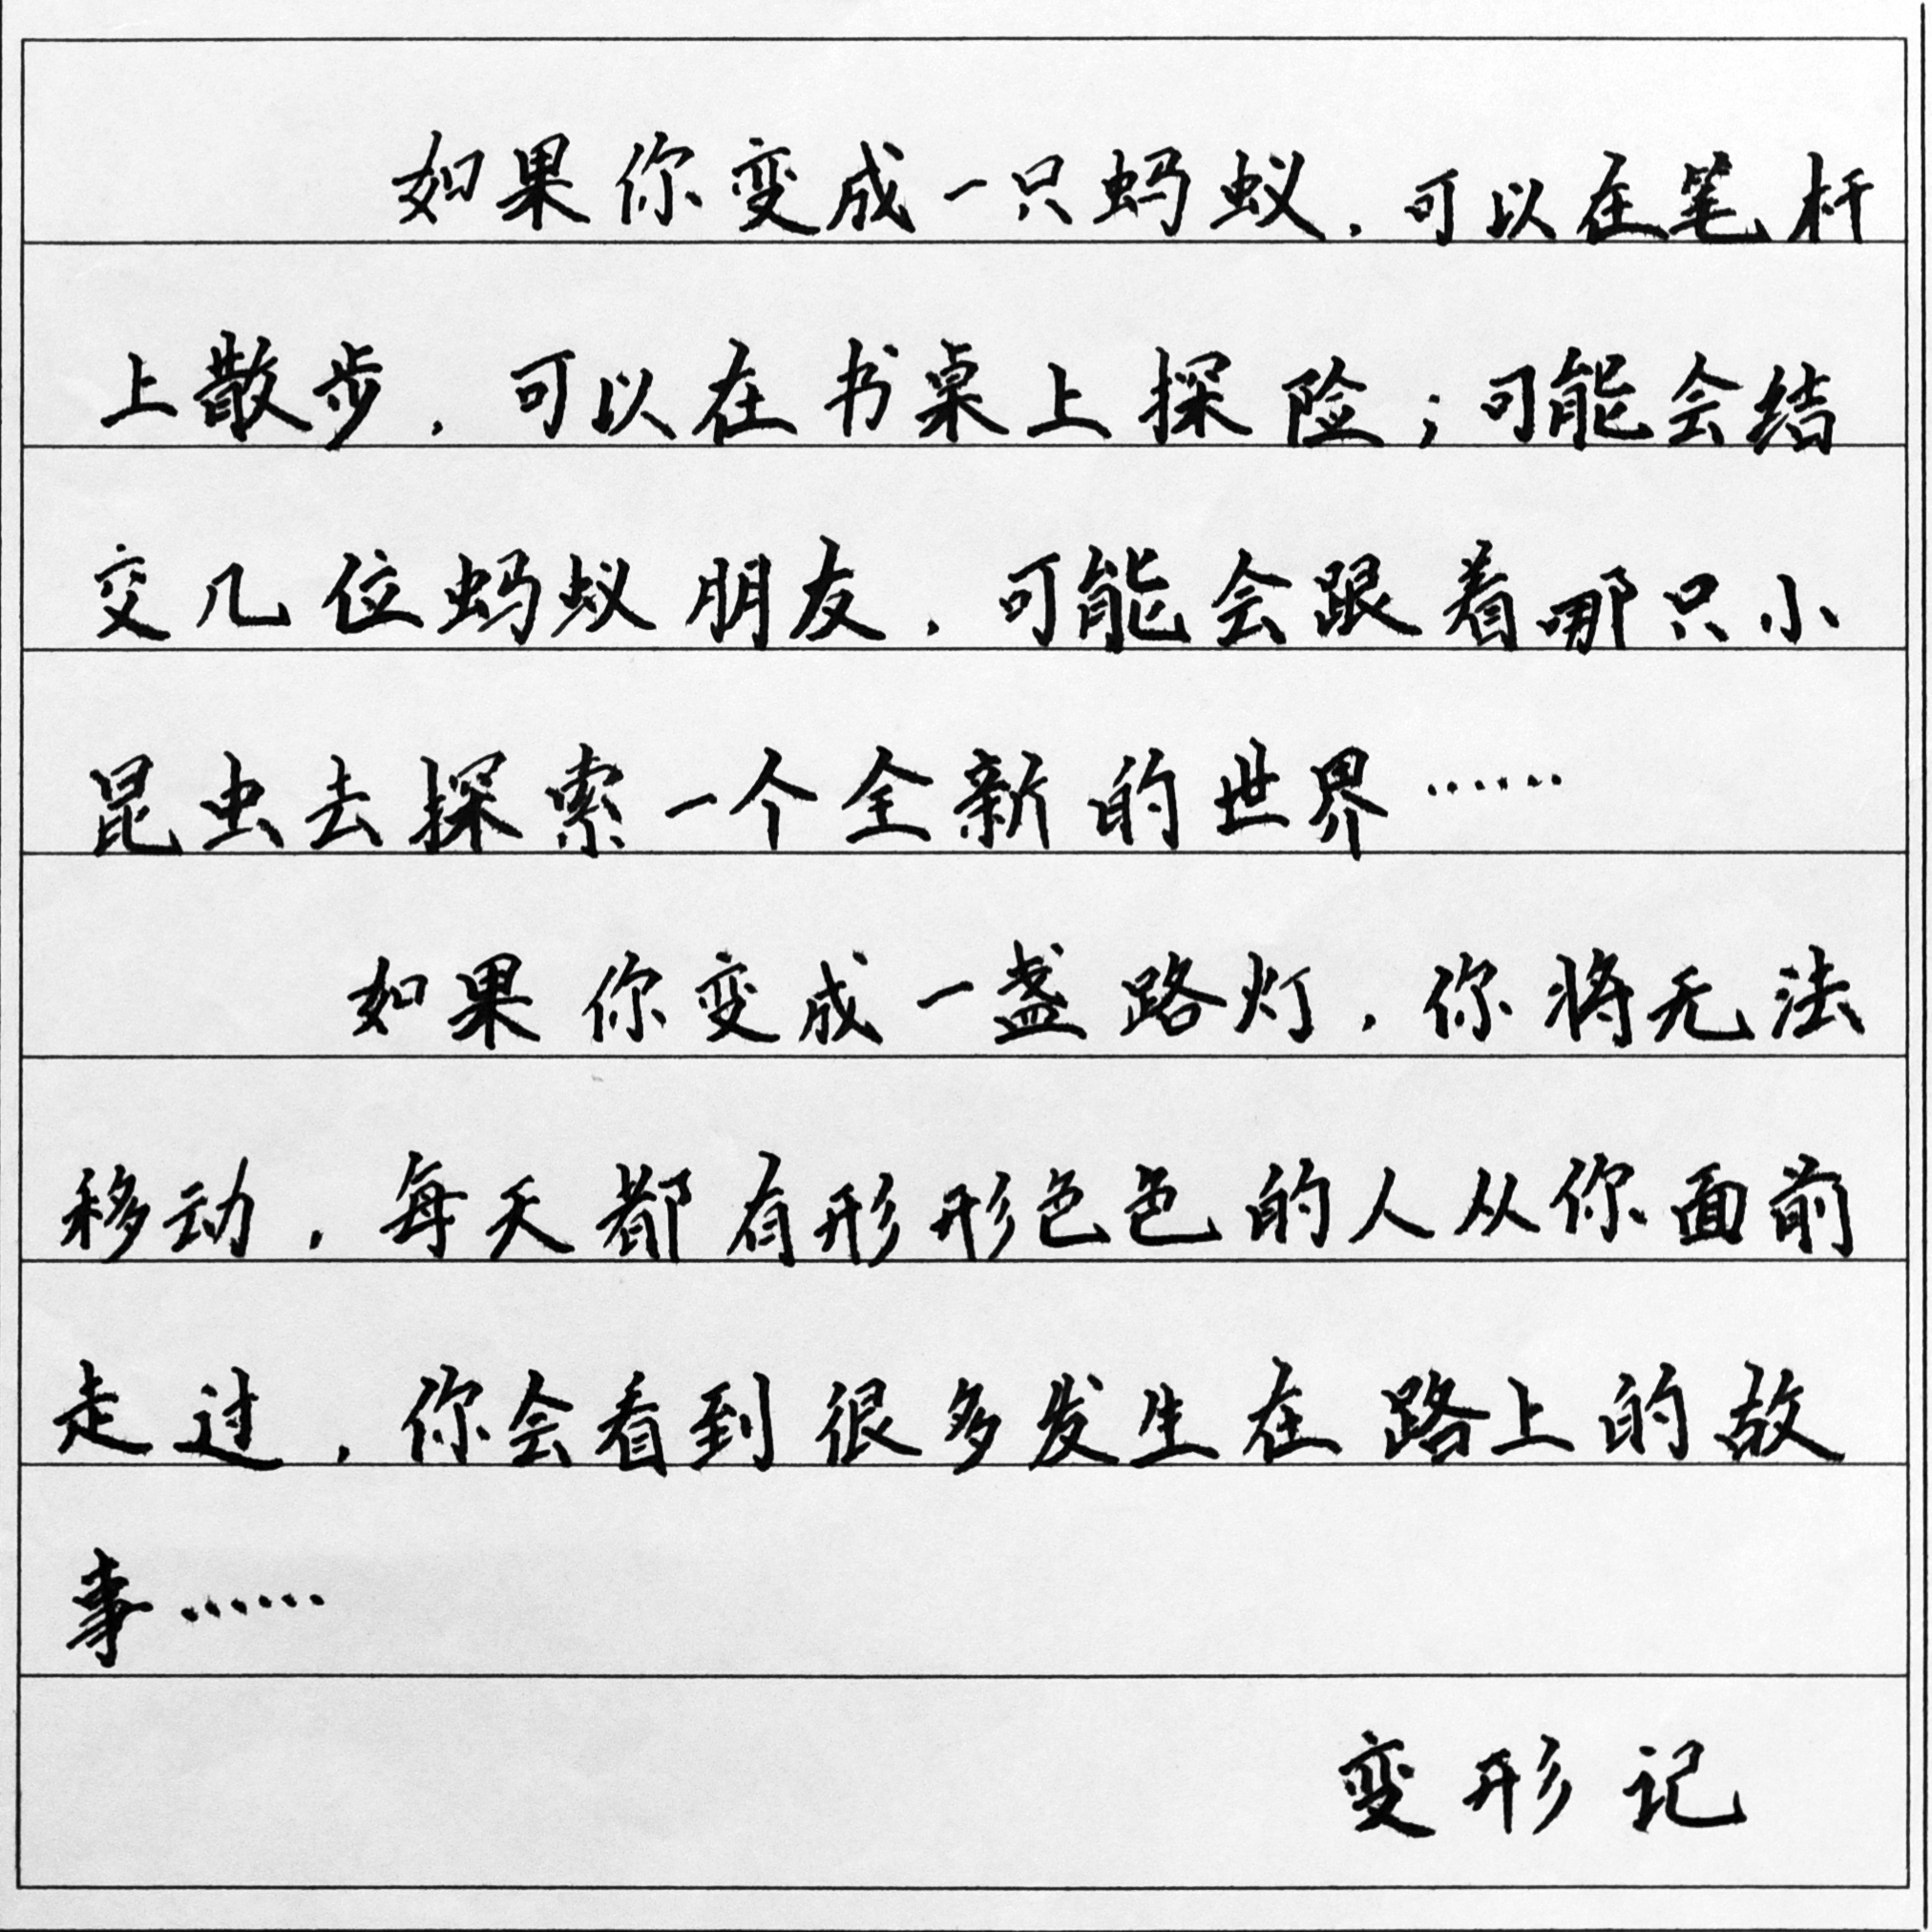 如果你变成一只蚂蚁，可以在笔杆
上散步，可以在书桌上探险；可能会结
交几位蚂蚁朋友，可能会跟着哪只小
昆虫去探索一个全新的世界……
如果你变成一盏路灯，你将无法
移动，每天都有形形色色的人从你面前
走过，你会看到很多发生在路上的故
事……
变形记